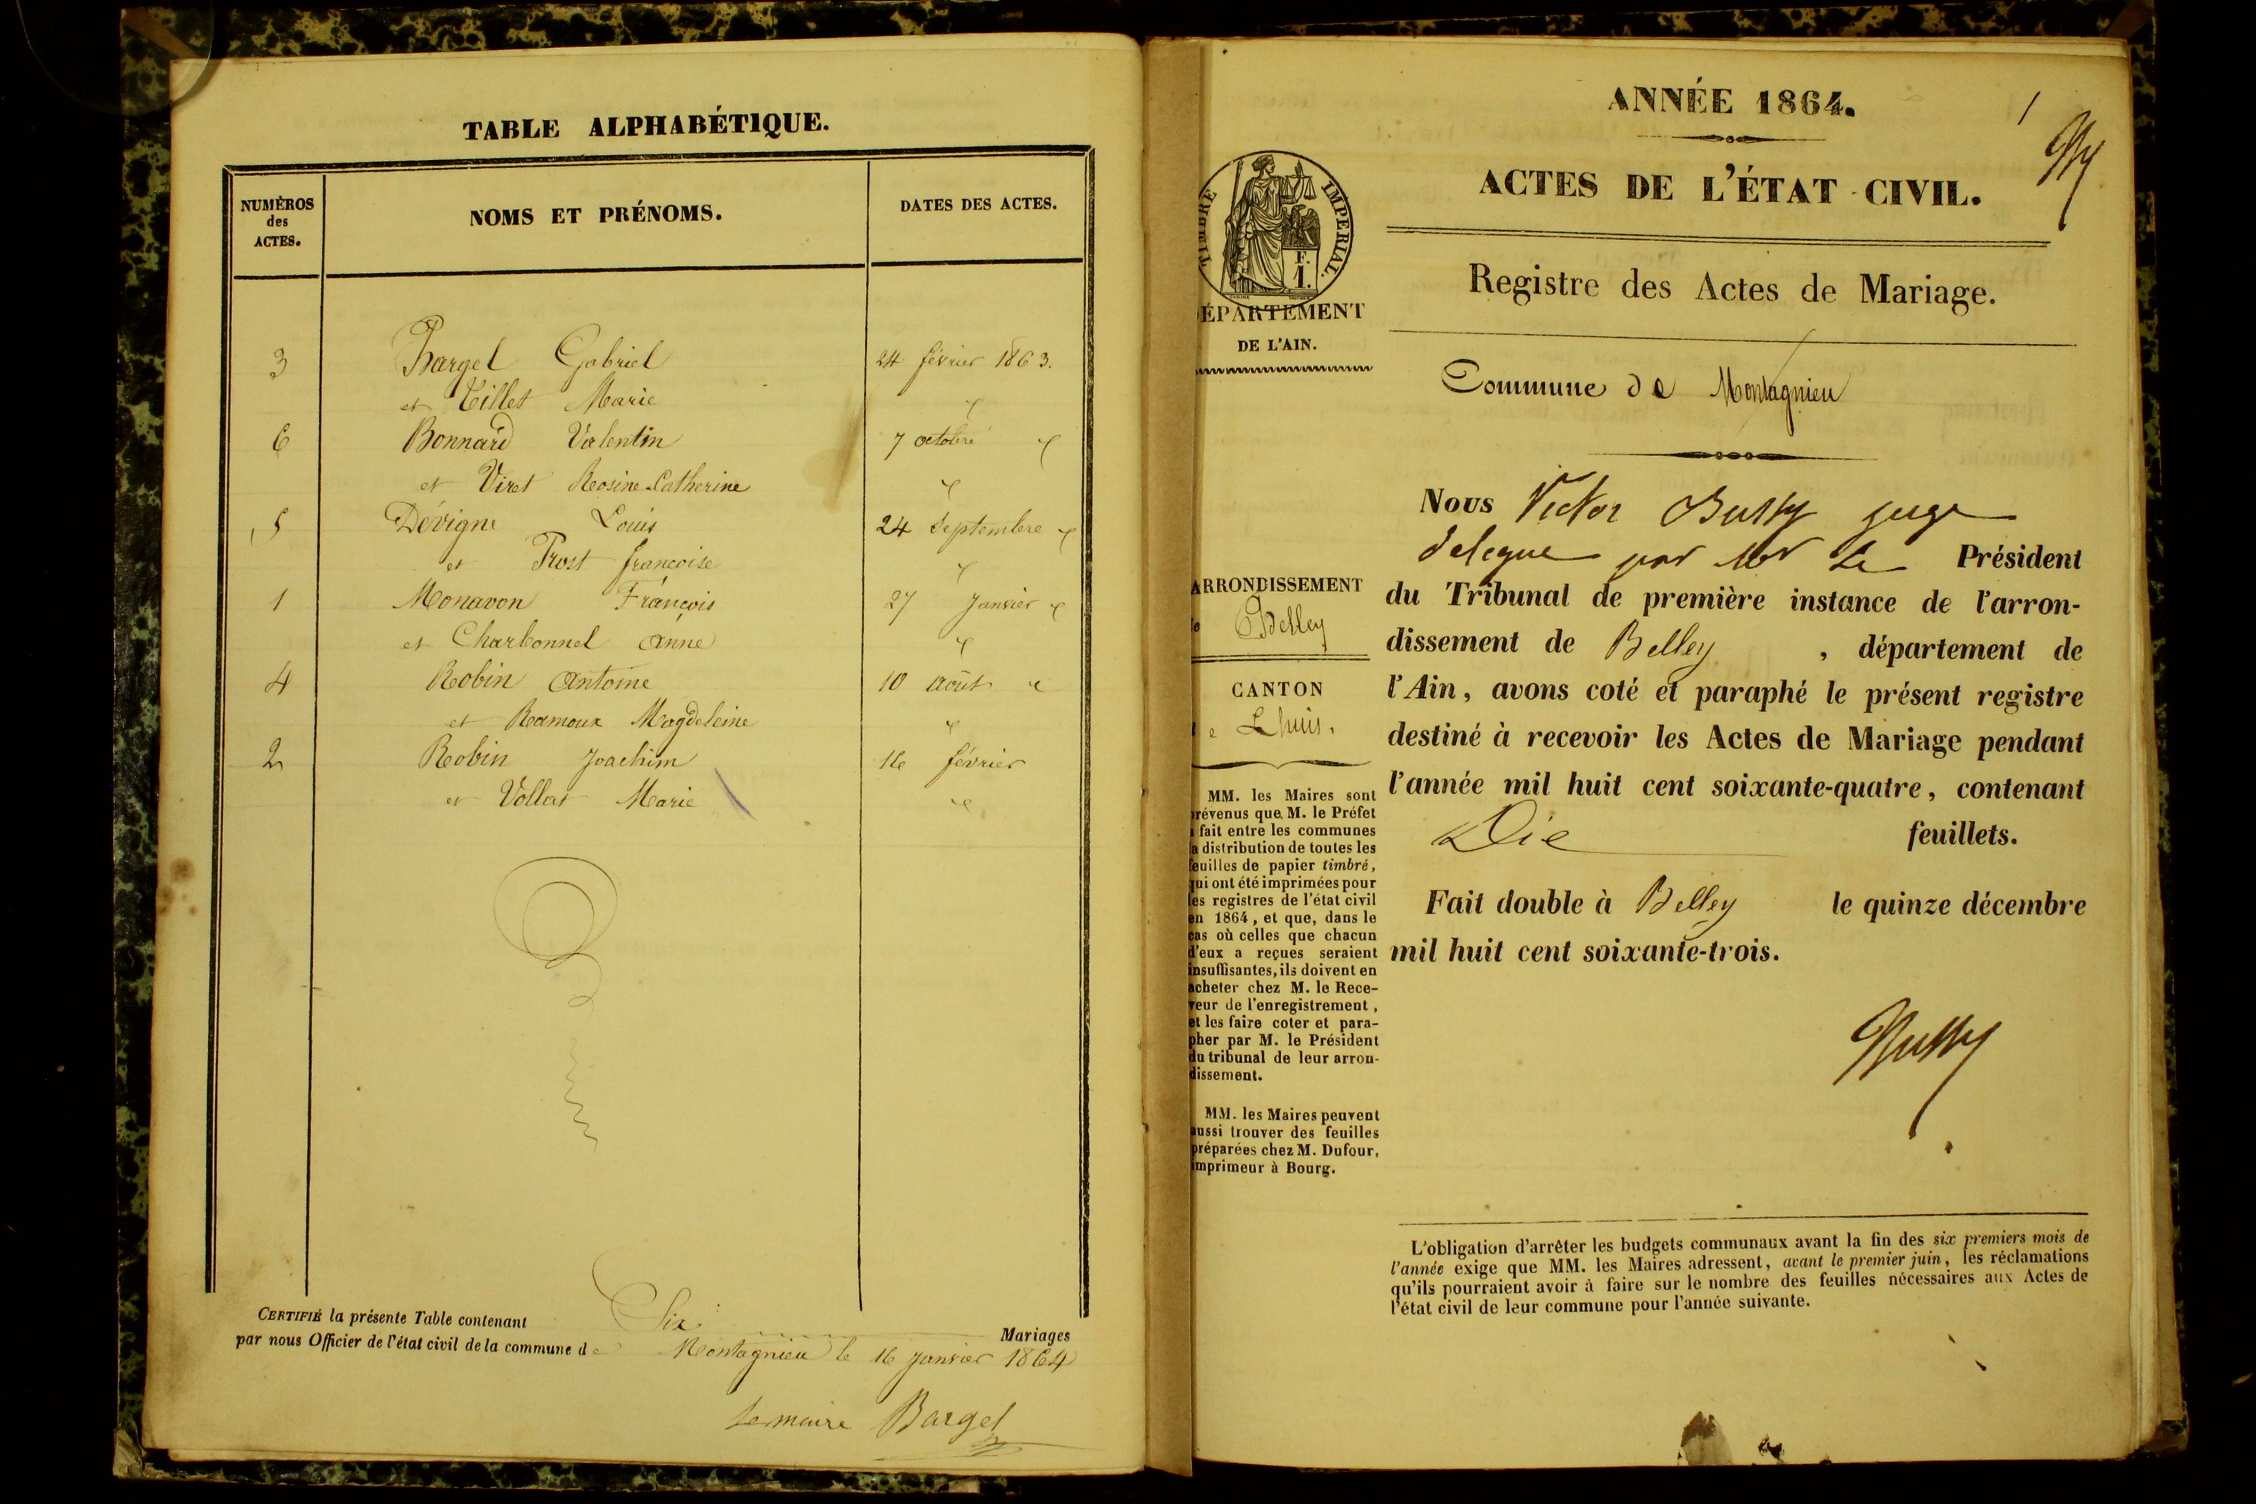 TABLE ALPHABÉTIQUE.
NUMÉROS
des
ACTES.
NOMS ET PRÉNOMS.
DATES DES ACTES.
3 Bargel Gabriel 24 février 1863.
et Tillet Marie "
6 Bonnard Valentin 7 octobre "
et Viret Rosine Catherine "
5 Dévigne Louis 24 Septembre "
et Prost françoise "
1 Monavon François 27 Janvier "
et Charbonnel Anne "
4 Robin Antoine 10 Août "
et Ramoux Magdeleine "
2 Robin Joachim 16 février
et Vollat Marie "
CERTIFIÉ la présente Table contenant Six Mariages
par nous Officier de l'état civil de la commune de Montagnieu le 16 Janvier 1864
Le maire Bargel
1
ANNÉE 1864.
ACTES DE L'ÉTAT CIVIL.
Registre des Actes de Mariage.
TIMBRE IMPERIAL.
F.
1.
DÉPARTEMENT
DE L'AIN.
Commune de Montagnieu
ARRONDISSEMENT
de Belley
CANTON
de Lhuis.
MM. les Maires sont
prévenus que M. le Préfet
a fait entre les communes
la distribution de toutes les
feuilles de papier timbré,
qui ont été imprimées pour
les registres de l'état civil
en 1864, et que, dans le
cas où celles que chacun
d'eux a reçues seraient
insuffisantes, ils doivent en
acheter chez M. le Rece-
veur de l'enregistrement,
et les faire coter et para-
pher par M. le Président
du tribunal de leur arron-
dissement.
MM. les Maires peuvent
aussi trouver des feuilles
préparées chez M. Dufour,
imprimeur à Bourg.
Nous Victor Bussy juge
delegue par Mr Le Président
du Tribunal de première instance de l'arron-
dissement de Belley, département de
l'Ain, avons coté et paraphé le présent registre
destiné à recevoir les Actes de Mariage pendant
l'année mil huit cent soixante-quatre, contenant
Dix feuillets.
Fait double à Belley le quinze décembre
mil huit cent soixante-trois.
Bussy
L'obligation d'arrêter les budgets communaux avant la fin des six premiers mois de
l'année exige que MM. les Maires adressent, avant le premier juin, les réclamations
qu'ils pourraient avoir à faire sur le nombre des feuilles nécessaires aux Actes de
l'état civil de leur commune pour l'année suivante.